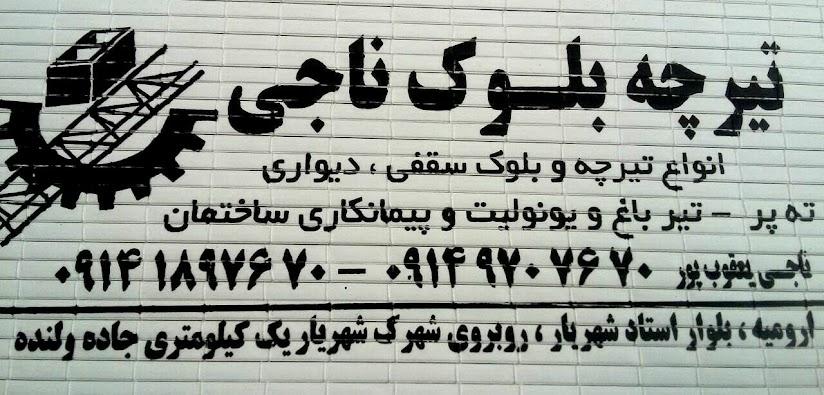 تیرچه بلوک ناجی
انواع تیرچه و بلوک سقفی ، دیواری
ته پر - تیر باغ و یونولیت و پیمانکاری ساختمان
ناجی یعقوب پور ۰۹۱۴ ۹۷۰ ۷۶ ۷۰ - ۰۹۱۴ ۱۸۹ ۷۶ ۷۰
ارومیه ، بلوار استاد شهریار ، روبروی شهرک شهریار یک کیلومتری جاده ولنده